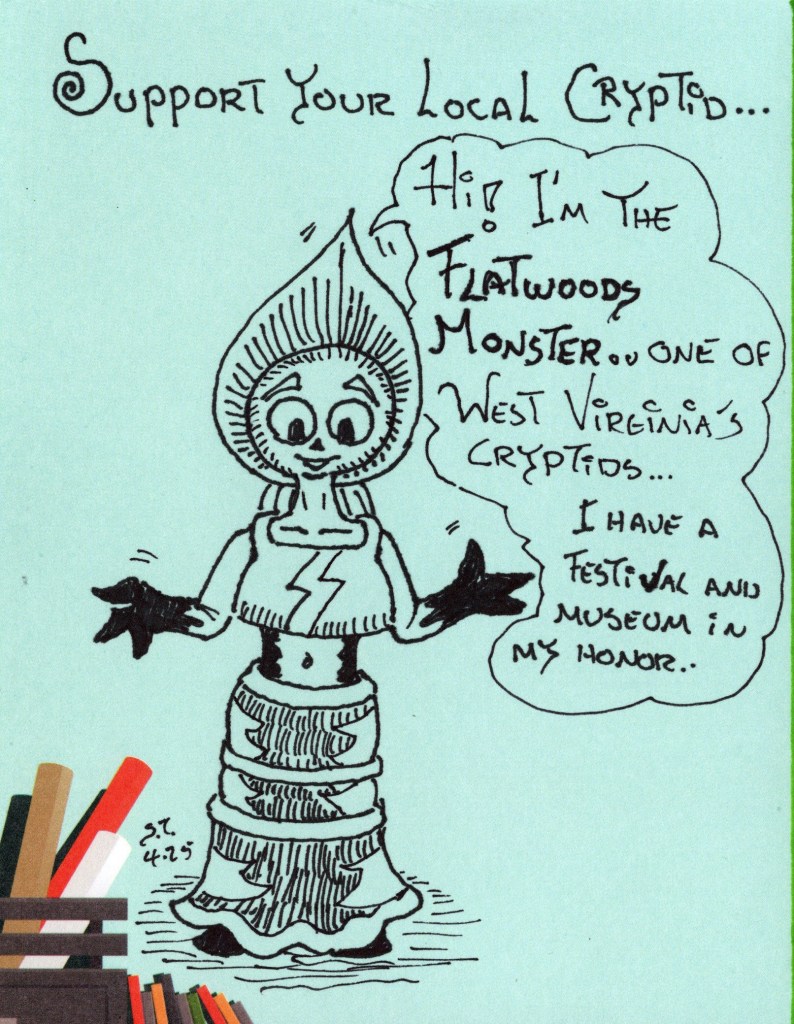 Support Your Local Cryptid...
Hi! I'm The
Flatwoods
Monster... one of
West Virginia's
cryptids...
I have a
festival and
museum in
my honor..
S.T.
4.25